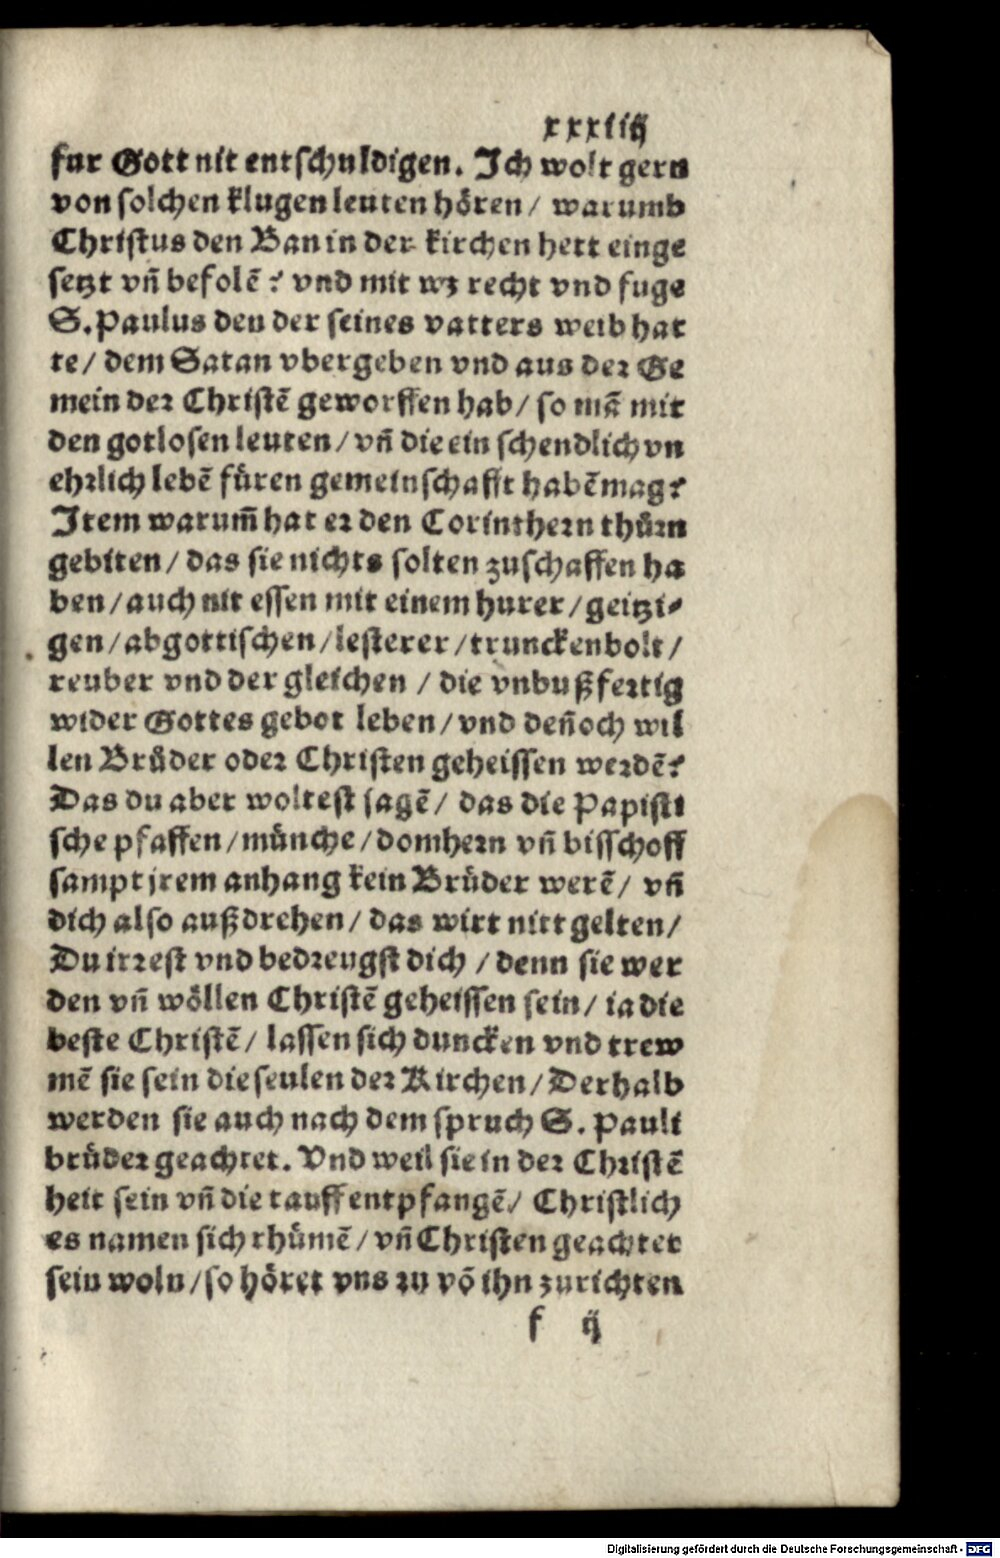 xxxiiij
fur Gott nit entschuldigen. Ich wolt gern
von solchen klugen leuten hören / warumb
Christus den Ban in der kirchen hett einge
setzt vñ befolẽ? vnd mit wz recht vnd fuge
S. Paulus den der seines vatters weib hat
te / dem Satan vbergeben vnd aus der Ge
mein der Christẽ geworffen hab / so mã mit
den gotlosen leuten / vñ die ein schendlich vn
ehrlich lebẽ füren gemeinschafft habẽ mag?
Item warum̃ hat er den Corinthern thürn
gebiten / das sie nichts solten zuschaffen ha
ben / auch nit essen mit einem hurer / geitzi⸗
gen / abgottischen / lesterer / trunckenbolt /
reuber vnd der gleichen / die vnbußfertig
wider Gottes gebot leben / vnd deñoch wil
len Brüder oder Christen geheissen werdẽ?
Das du aber woltest sagẽ / das die Papisti
sche pfaffen / münche / domhern vñ bisschoff
sampt jrem anhang kein Brüder werẽ / vñ
dich also außdrehen / das wirt nitt gelten /
Du irrest vnd bedreugst dich / denn sie wer
den vñ wöllen Christẽ geheissen sein / ia die
beste Christẽ / lassen sich duncken vnd trew
mẽ sie sein die seulen der Kirchen / Derhalb
werden sie auch nach dem spruch S. Pauli
brüder geachtet. Vnd weil sie in der Christẽ
heit sein vñ die tauff entpfangẽ / Christlich
es namen sich rhümẽ / vñ Christen geachtet
sein woln / so höret vns zu võ ihn zurichten
f ij
Digitalisierung gefördert durch die Deutsche Forschungsgemeinschaft - DFG